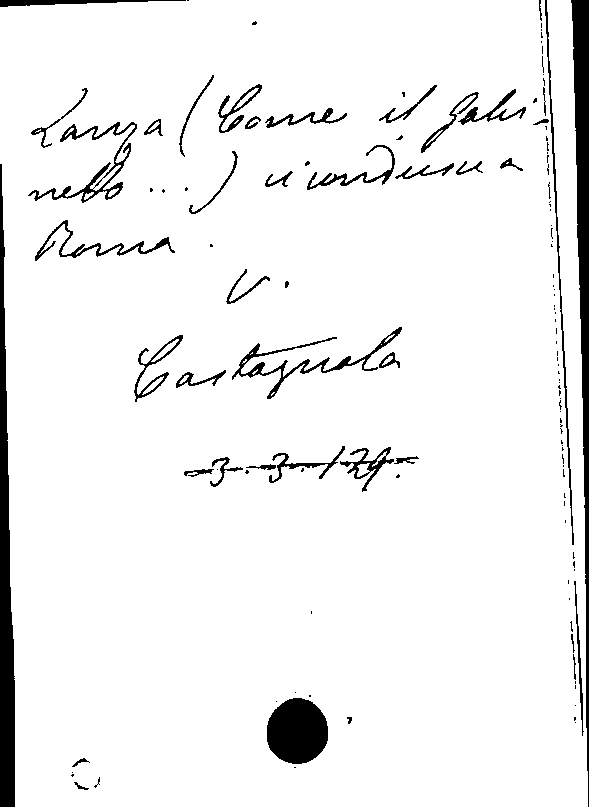 Lanza (Come il Gabi-
netto ...) ci condusse a
Roma.
V.
Castagnola
3.3.129.